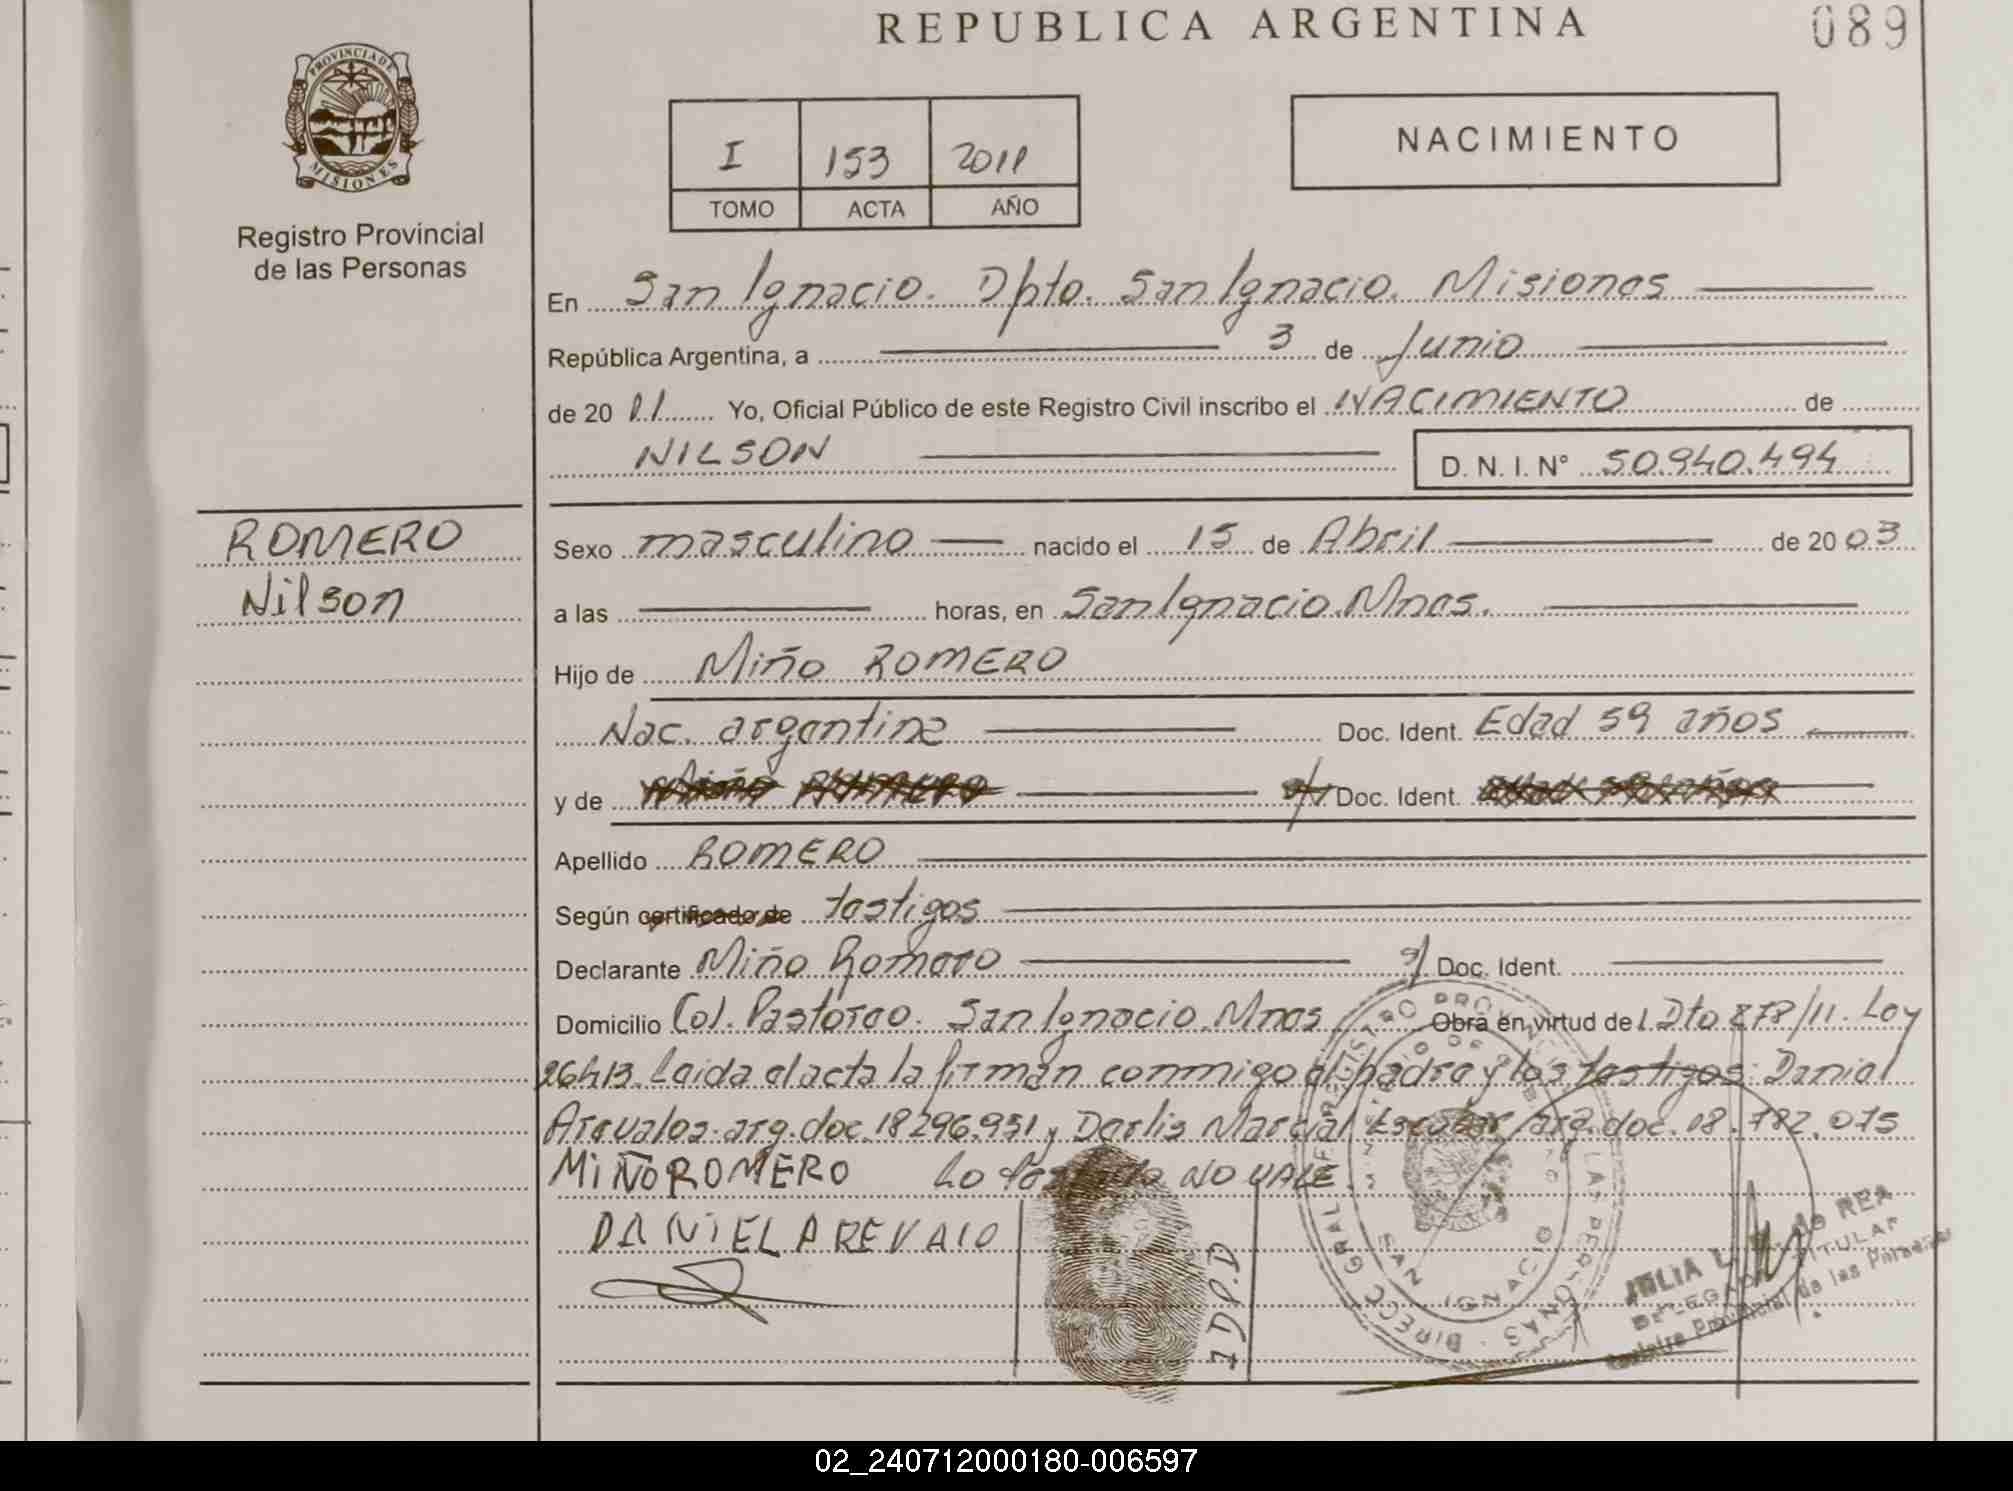 REPUBLICA ARGENTINA
089
PROVINCIA DE
MISIONES
Registro Provincial
de las Personas
I 153 2011
TOMO ACTA AÑO
NACIMIENTO
En San Ignacio. Dpto. San Ignacio. Misiones
República Argentina, a 3 de Junio
de 20 11 Yo, Oficial Público de este Registro Civil inscribo el NACIMIENTO de
NILSON D. N. I. N° 50.940.494
ROMERO
Nilson
Sexo masculino nacido el 15 de Abril de 20 03
a las horas, en San Ignacio. Mnes.
Hijo de Miño ROMERO
Nac. argentina Doc. Ident. Edad 59 años
y de Miño ROMERO Doc. Ident.
Apellido ROMERO
Según certificado de testigos
Declarante Miño Romero Doc. Ident.
Domicilio Col. Pastoreo. San Ignacio. Mnes Obra en virtud del Dto 278/11. Ley
26413. Leida el acta la firman conmigo el padre y los testigos: Daniel
Arevalos. arg. doc. 18296.951 y Darlis Marcial Escobar arg. doc. 18.782.075
MIÑO ROMERO Lo testado NO VALE.
DANIEL AREVALO
I D P.D
DIRECC GRAL REGISTRO PROVINCIAL DE LAS PERSONAS
SAN IGNACIO
JULIA L. de REA
DELEGADA TITULAR
Registro Provincial de las Personas
02_240712000180-006597